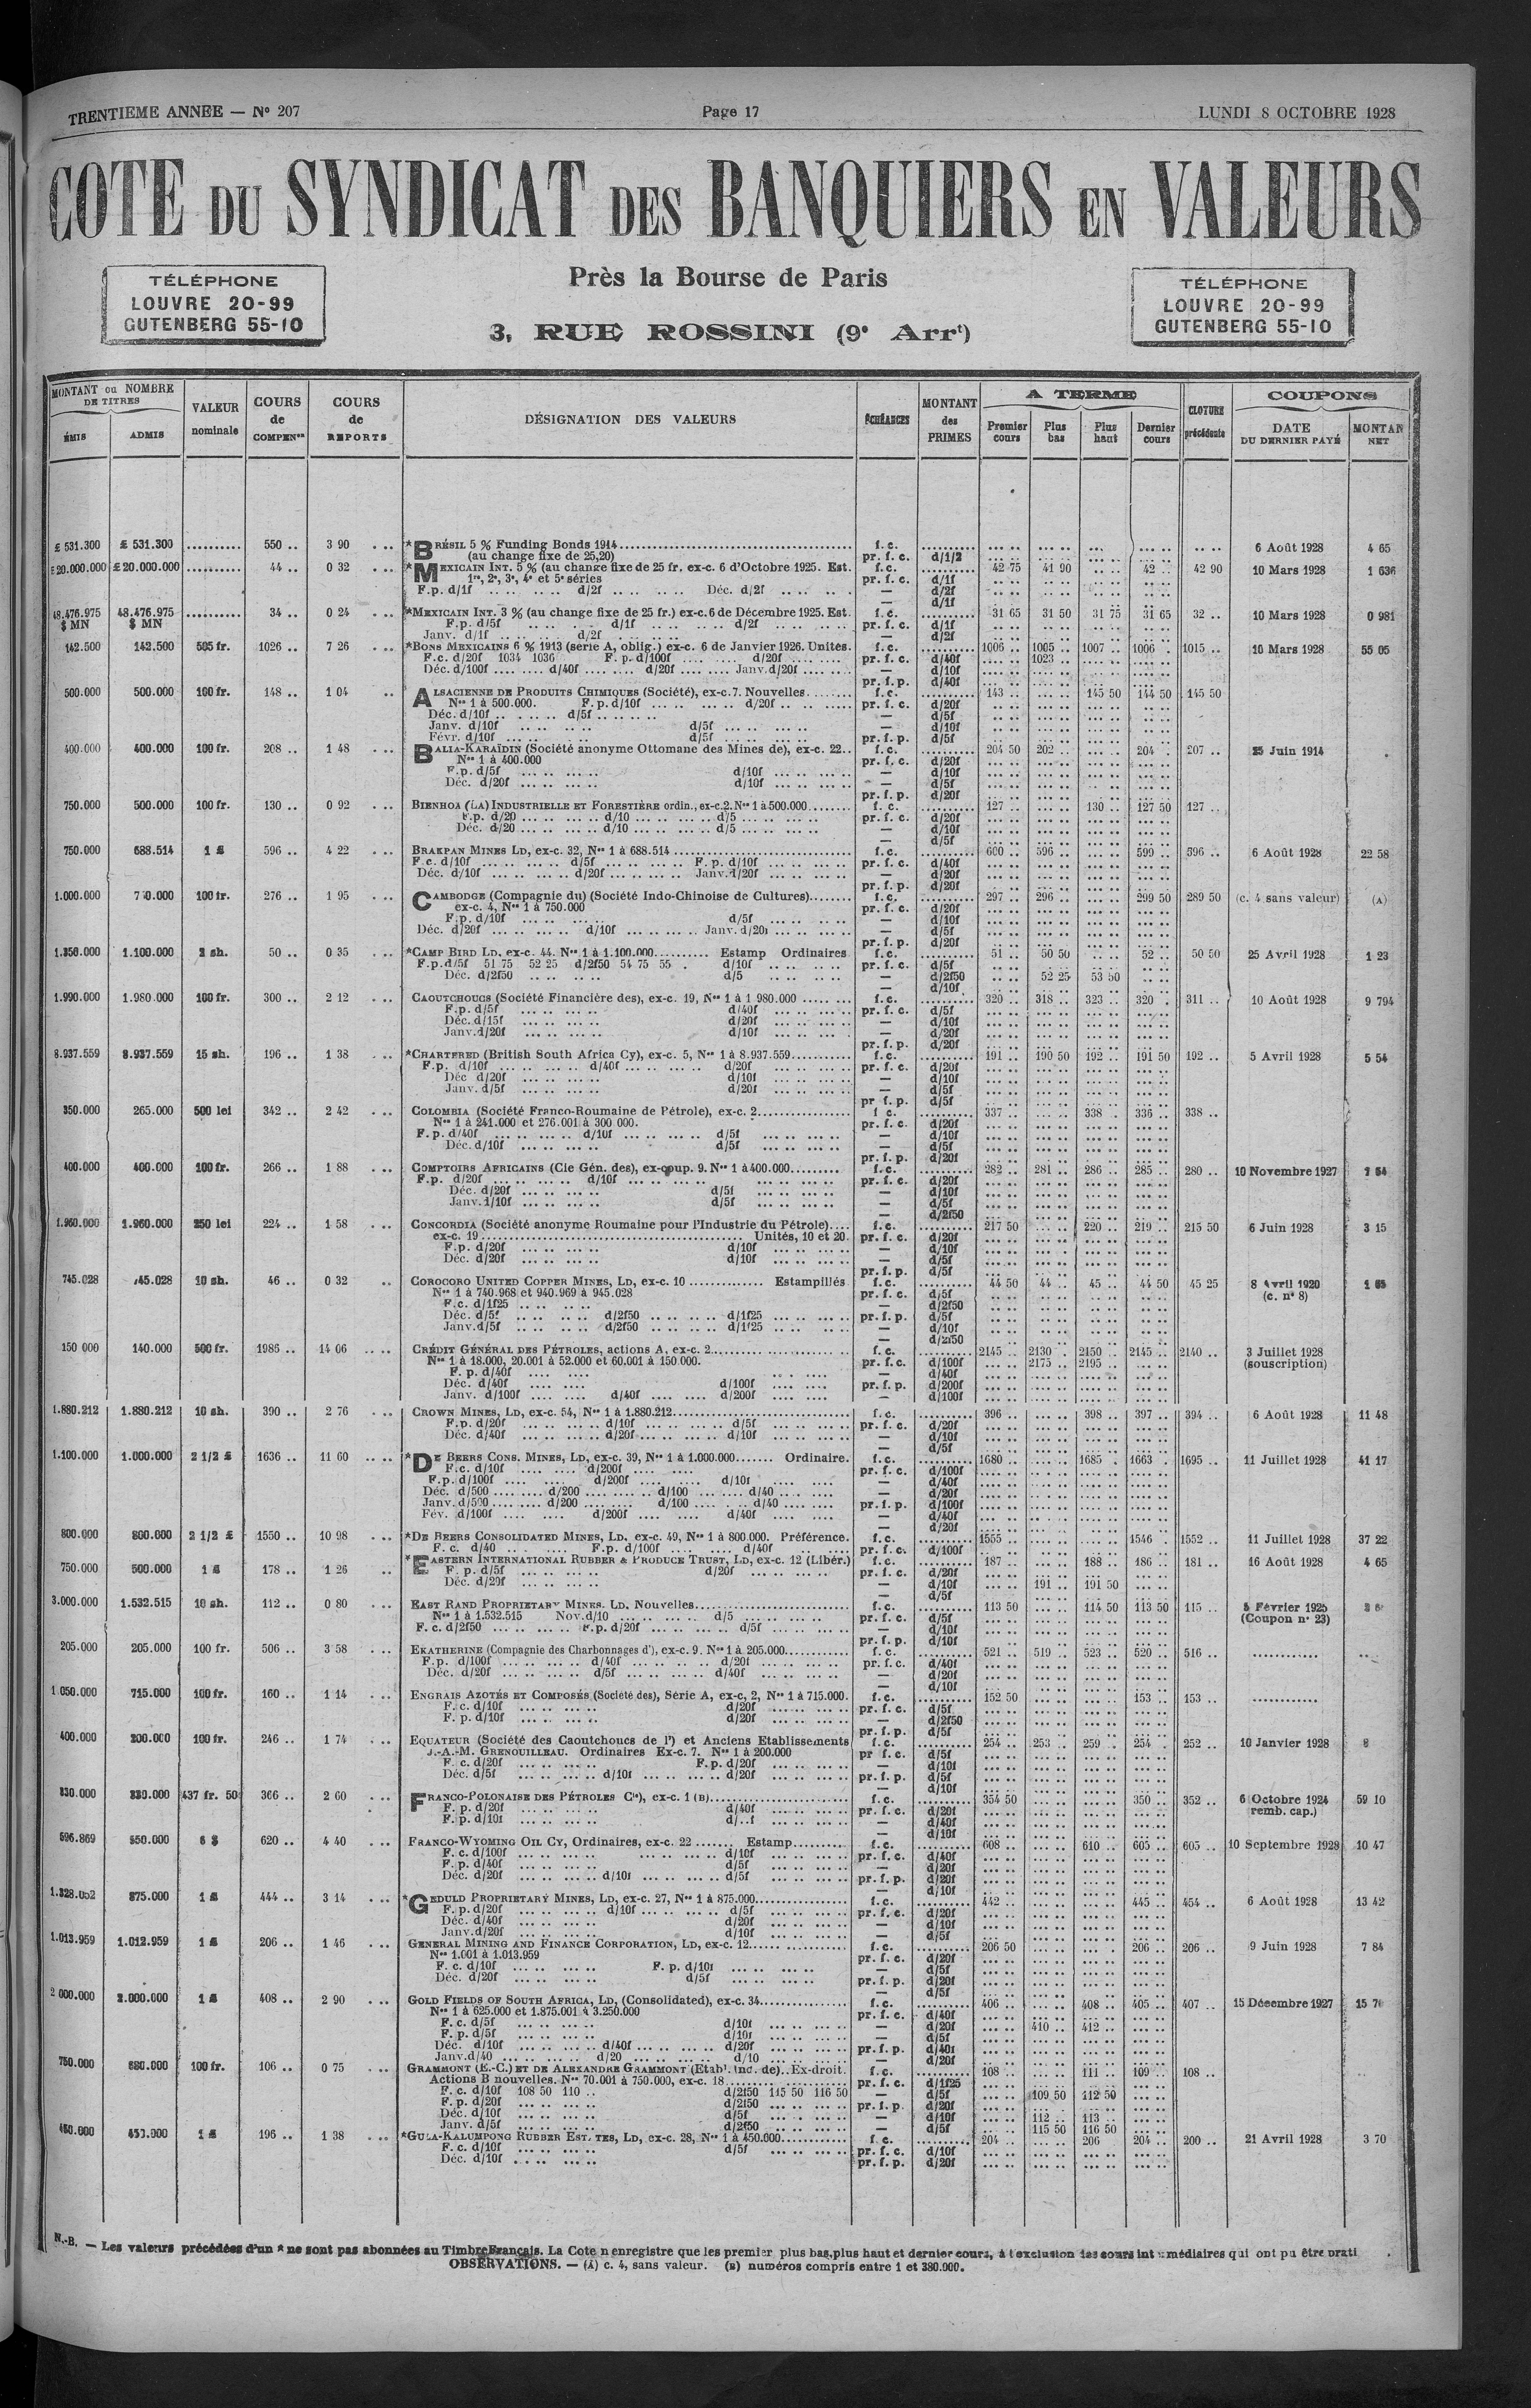 TRENTIEME ANNÉE — N° 207
Page 17
LUNDI 8 OCTOBRE 1928
COTE DU SYNDICAT DES BANQUIERS EN VALEURS
TÉLÉPHONE
LOUVRE 20-99
GUTENBERG 55-10
Près la Bourse de Paris
3, RUE ROSSINI (9e Arrt)
TÉLÉPHONE
LOUVRE 20-99
GUTENBERG 55-10
MONTANT ou NOMBRE DE TITRES
ÉMIS ADMIS
VALEUR nominale
COURS de COMPENon
COURS de REPORTS
DÉSIGNATION DES VALEURS
ÉCHÉANCES
MONTANT des PRIMES
A TERME
Premier cours Plus bas Plus haut Dernier cours
CLOTURE précédente
COUPONS
DATE DU DERNIER PAYÉ MONTAN NET
£ 531.300 £ 531.300 .......... 550 .. 3 90 *BRÉSIL 5 % Funding Bonds 1914 f. c. 6 Août 1928 4 65
(au change fixe de 25,20) pr. f. c. d/1/2
£20.000.000 £20.000.000 .......... 44 .. 0 32 *MEXICAIN INT. 5 % (au change fixe de 25 fr. ex-c. 6 d'Octobre 1925. Est. f.c. 42 75 41 90 42 .. 42 90 10 Mars 1928 1 636
1re, 2e, 3e, 4e et 5e séries pr. f. c. d/1f
F.p. d/1f d/2f Déc. d/2f — d/2f
— d/1f
48.476.975 48.476.975 .......... 34 .. 0 24 *MEXICAIN INT. 3 % (au change fixe de 25 fr.) ex-c. 6 de Décembre 1925. Est. f. c. 31 65 31 50 31 75 31 65 32 .. 10 Mars 1928 0 981
$ MN $ MN F.p. d/5f d/1f d/2f pr. f. c. d/1f
Janv. d/1f d/2f — d/2f
142.500 142.500 505 fr. 1026 .. 7 26 *BONS MEXICAINS 6 % 1913 (série A, oblig.) ex-c. 6 de Janvier 1926. Unités. f.c. 1006 .. 1005 .. 1007 .. 1006 . 1015 .. 10 Mars 1928 55 05
F.c. d/20f 1034 1036 F. p. d/100f d/20f pr. f. c. d/40f 1023 ..
Déc. d/100f d/40f d/20f Janv. d/20f — d/10f
pr. f. p. d/40f
500.000 500.000 100 fr. 148 .. 1 04 ALSACIENNE DE PRODUITS CHIMIQUES (Société), ex-c. 7. Nouvelles f.c. 143 .. 145 50 144 50 145 50
Nos 1 à 500.000. F. p. d/10f d/20f pr. f. c. d/20f
Déc. d/10f d/5f — d/5f
Janv. d/10f d/5f — d/10f
Févr. d/10f d/5f pr. f. p. d/5f
400.000 400.000 100 fr. 208 .. 1 48 BALIA-KARAÏDIN (Société anonyme Ottomane des Mines de), ex-c. 22.. f. c. 204 50 202 .. 204 . 207 .. 25 Juin 1914
Nos 1 à 400.000 pr. f. c. d/20f
F.p. d/5f d/10f — d/10f
Déc. d/20f d/10f — d/5f
pr. f. p. d/20f
750.000 500.000 100 fr. 130 .. 0 92 BIENHOA (LA) INDUSTRIELLE ET FORESTIÈRE ordin., ex-c. 2. Nos 1 à 500.000 f. c. 127 .. 130 .. 127 50 127 ..
F.p. d/20 d/10 d/5 pr. f. c. d/20f
Déc. d/20 d/10 d/5 — d/10f
— d/5f
750.000 688.514 1 £ 596 .. 4 22 BRAKPAN MINES LD, ex-c. 32, Nos 1 à 688.514 f.c. 600 .. 596 .. 599 .. 596 .. 6 Août 1928 22 58
F.c. d/10f d/5f F. p. d/10f pr. f. c. d/40f
Déc. d/10f d/20f Janv. d/20f — d/20f
pr. f. p. d/20f
1.000.000 100 fr. 276 .. 1 95 CAMBODGE (Compagnie du) (Société Indo-Chinoise de Cultures) f.c. 297 .. 296 .. 299 50 289 50 (c. 4 sans valeur) (A)
ex-c. 4, Nos 1 à 750.000 pr. f. c. d/20f
F.p. d/10f d/5f — d/10f
Déc. d/20f d/10f Janv. d/20f — d/5f
pr. f. p. d/20f
1.350.000 1.100.000 2 sh. 50 .. 0 35 *CAMP BIRD LD, ex-c. 44. Nos 1 à 1.100.000 Estamp Ordinaires f.c. 51 .. 50 50 52 .. 50 50 25 Avril 1928 1 23
F.p. d/5f 51 75 52 25 d/2f50 54 75 55 . d/10f pr. f. c. d/5f
Déc. d/2f50 d/5 — d/2f50 52 25 53 50
— d/10f
1.990.000 1.980.000 100 fr. 300 .. 2 12 CAOUTCHOUCS (Société Financière des), ex-c. 19, Nos 1 à 1 980.000 f.c. 320 .. 318 .. 323 .. 320 . 311 .. 10 Août 1928 9 794
F.p. d/5f d/40f pr. f. c. d/5f
Déc. d/15f d/20f — d/10f
Janv. d/20f d/10f — d/20f
pr. f. p. d/20f
8.937.559 8.937.559 15 sh. 196 .. 1 38 *CHARTERED (British South Africa Cy), ex-c. 5, Nos 1 à 8.937.559 f.c. 191 .. 190 50 192 .. 191 50 192 .. 5 Avril 1928 5 54
F.p. d/10f d/40f d/20f pr. f. c. d/20f
Déc d/20f d/10f — d/10f
Janv. d/5f d/20f — d/5f
pr f. p. d/5f
350.000 265.000 500 lei 342 .. 2 42 COLOMBIA (Société Franco-Roumaine de Pétrole), ex-c. 2 f c. 337 .. 338 . 336 .. 338 ..
Nos 1 à 241.000 et 276.001 à 300 000. pr. f. c. d/20f
F.p. d/40f d/10f d/5f — d/10f
Déc. d/10f d/5f — d/5f
pr. f. p. d/20f
400.000 400.000 100 fr. 266 .. 1 88 COMPTOIRS AFRICAINS (Cie Gén. des), ex-coup. 9. Nos 1 à 400.000 f.c. 282 .. 281 .. 286 .. 285 .. 280 .. 10 Novembre 1927
F.p. d/20f d/10f pr. f. c. d/20f
Déc. d/20f d/5f — d/10f
Janv. d/10f d/5f — d/5f
— d/2f50
1.960.000 1.960.000 250 lei 224 .. 1 58 CONCORDIA (Société anonyme Roumaine pour l'Industrie du Pétrole) f.c. 217 50 220 .. 219 .. 215 50 6 Juin 1928 3 15
ex-c. 19 Unités, 10 et 20. pr. f. c. d/20f
F.p. d/20f d/10f — d/10f
Déc. d/20f d/10f — d/5f
pr. f. p. d/5f
745.028 745.028 10 sh. 46 .. 0 32 COROCORO UNITED COPPER MINES, LD, ex-c. 10 Estampillés f.c. 44 50 44 .. 45 .. 44 50 45 25 8 Avril 1920
Nos 1 à 740.968 et 940.969 à 945.028 pr. f. c. d/5f (c. n° 8)
F.c. d/1f25 — d/2f50
Déc. d/5f d/2f50 d/1f25 pr. f. p. d/5f
Janv. d/5f d/2f50 d/1f25 — d/10f
— d/2f50
150 000 140.000 500 fr. 1986 .. 14 06 CRÉDIT GÉNÉRAL DES PÉTROLES, actions A, ex-c. 2 f. c. 2145 .. 2130 . 2150 .. 2145 .. 2140 .. 3 Juillet 1928
Nos 1 à 18.000, 20.001 à 52.000 et 60.001 à 150 000. pr. f. c. d/100f 2175 .. 2195 .. (souscription)
F. p. d/40f — d/40f
Déc. d/40f d/100f pr. f. p. d/200f
Janv. d/100f d/40f d/200f — d/100f
1.880.212 1.880.212 10 sh. 390 .. 2 76 CROWN MINES, LD, ex-c. 54, Nos 1 à 1.880.212 f.c. 396 .. 398 .. 397 .. 394 .. 6 Août 1928 11 48
F.p. d/20f d/10f d/5f pr. f. c. d/20f
Déc. d/40f d/20f d/10f — d/10f
— d/5f
1.100.000 1.000.000 2 1/2 £ 1636 .. 11 60 *DE BEERS CONS. MINES, LD, ex-c. 39, Nos 1 à 1.000.000 Ordinaire. f.c. 1680 .. 1685 . 1663 . 1695 .. 11 Juillet 1928 41 17
F.c. d/10f d/200f pr. f. c. d/100f
F.p. d/100f d/200f d/10f — d/40f
Déc. d/500 d/200 d/100 d/40 — d/20f
Janv. d/500 d/200 d/100 d/40 pr. f. p. d/100f
Fév. d/100f d/200f d/40f — d/40f
— d/20f
800.000 800.000 2 1/2 £ 1550 .. 10 98 *DE BEERS CONSOLIDATED MINES, LD, ex-c. 49, Nos 1 à 800.000. Préférence. f.c. 1555 .. 1546 . 1552 .. 11 Juillet 1928 37 22
F. c. d/40 F.p. d/100f d/40f pr. f. c. d/100f
750.000 500.000 1 £ 178 .. 1 26 *EASTERN INTERNATIONAL RUBBER & PRODUCE TRUST, LD, ex-c. 12 (Libér.) f.c. 187 .. 188 .. 186 .. 181 .. 16 Août 1928 4 65
F. p. d/5f d/20f pr. f. c. d/20f
Déc. d/20f — d/10f 191 .. 191 50
— d/5f
3.000.000 1.532.515 10 sh. 112 .. 0 80 EAST RAND PROPRIETARY MINES. LD. Nouvelles f.c. 113 50 114 50 113 50 115 .. Février 1925
Nos 1 à 1.532.515 Nov. d/10 d/5 pr. f. c. d/5f (Coupon n° 23)
F. c. d/2f50 F.p. d/20f d/5f — d/10f
pr. f. p. d/10f
205.000 205.000 100 fr. 506 .. 3 58 EKATHERINE (Compagnie des Charbonnages d'), ex-c. 9. Nos 1 à 205.000 f. c. 521 .. 519 .. 523 .. 520 .. 516 ..
F.p. d/100f d/40f d/20f pr. f. c. d/40f
Déc. d/20f d/5f d/40f — d/20f
— d/10f
1 050.000 715.000 100 fr. 160 .. 1 14 ENGRAIS AZOTÉS ET COMPOSÉS (Société des), Série A, ex-c, 2, Nos 1 à 715.000. f.c. 152 50 153 .. 153 ..
F. c. d/10f d/20f pr. f. c. d/5f
F. p. d/10f d/20f — d/2f50
pr. f. p. d/5f
400.000 200.000 100 fr. 246 .. 1 74 EQUATEUR (Société des Caoutchoucs de l') et Anciens Etablissements f.c. 254 .. 253 .. 259 .. 254 .. 252 .. 10 Janvier 1928 8
J.-A.-M. GRENOUILLEAU. Ordinaires Ex-c. 7. Nos 1 à 200.000 pr f. c. d/5f
F. c. d/20f F. p. d/20f — d/10f
Déc. d/5f d/10f d/20f pr. f. p. d/5f
— d/10f
330.000 330.000 437 fr. 50 366 .. 2 60 FRANCO-POLONAISE DES PÉTROLES Cie), ex-c. 1 (B) f.c. 354 50 350 .. 352 .. 6 Octobre 1924 59 10
F. p. d/20f d/40f pr. f. c. d/20f remb. cap.)
F. p. d/10f d/..f — d/40f
— d/10f
596.869 550.000 6 $ 620 .. 4 40 FRANCO-WYOMING OIL CY, Ordinaires, ex-c. 22 Estamp f.c. 608 .. 610 .. 605 .. 605 .. 10 Septembre 1928 10 47
F. c. d/100f d/10f pr. f. c. d/40f
F. p. d/40f d/5f — d/20f
Déc. d/20f d/10f d/5f pr. f. p. d/20f
— d/10f
1.328.052 875.000 1 £ 444 .. 3 14 *GEDULD PROPRIETARY MINES, LD, ex-c. 27, Nos 1 à 875.000 f.c. 442 .. 445 .. 454 .. 6 Août 1928 13 42
F. p. d/20f d/10f d/5f pr. f. c. d/20f
Déc. d/40f d/20f — d/10f
Janv. d/20f d/10f — d/5f
1.013.959 1.012.959 1 £ 206 .. 1 46 GENERAL MINING AND FINANCE CORPORATION, LD, ex-c. 12 f. c. 206 50 206 .. 206 .. 9 Juin 1928 7 84
Nos 1.001 à 1.013.959 pr. f. c. d/20f
F. c. d/10f F. p. d/10f — d/5f
Déc. d/20f d/5f pr. f. p. d/20f
— d/5f
2 000.000 2.000.000 1 £ 408 .. 2 90 GOLD FIELDS OF SOUTH AFRICA, LD, (Consolidated), ex-c. 34 f.c. 406 .. 408 .. 405 .. 407 .. 15 Décembre 1927
Nos 1 à 625.000 et 1.875.001 à 3.250.000 pr. f. c. d/40f
F. c. d/5f d/10f — d/20f 410 .. 412 ..
F. p. d/5f d/10f — d/5f
Déc. d/10f d/40f d/20f pr. f. p. d/40f
Janv. d/40 d/20 d/10 — d/20f
750.000 680.000 100 fr. 106 .. 0 75 GRAMMONT (E.-C.) ET DE ALEXANDRE GRAMMONT (Etabl. Inc. de).. Ex-droit. f.c. 108 .. 111 .. 109 .. 108 ..
Actions B nouvelles. Nos 70.001 à 750.000, ex-c. 18 pr. f. c. d/1f25
F. c. d/10f 108 50 110 .. d/2f50 115 50 116 50 — d/5f 109 50 112 50
F. p. d/20f d/2f50 pr. f. p. d/20f
Déc. d/10f d/5f — d/10f 112 .. 113 ..
Janv. d/5f d/2f50 — d/5f 115 50 116 50
450.000 450.000 1 £ 196 .. 1 38 *GULA-KALUMPONG RUBBER EST. TES, LD, ex-c. 28, Nos 1 à 450.000 f c. 204 .. 206 204 .. 200 .. 21 Avril 1928 3 70
F. c. d/10f d/5f pr. f. c. d/10f
Déc. d/10f pr. f. p. d/20f
N.-B. — Les valeurs précédées d'un * ne sont pas abonnées au Timbre Français. La Cote n enregistre que les premier plus bas, plus haut et dernier cours, à l'exclusion des cours int médiaires qui ont pu être prati
OBSERVATIONS. — (A) c. 4, sans valeur. (B) numéros compris entre 1 et 380.000.